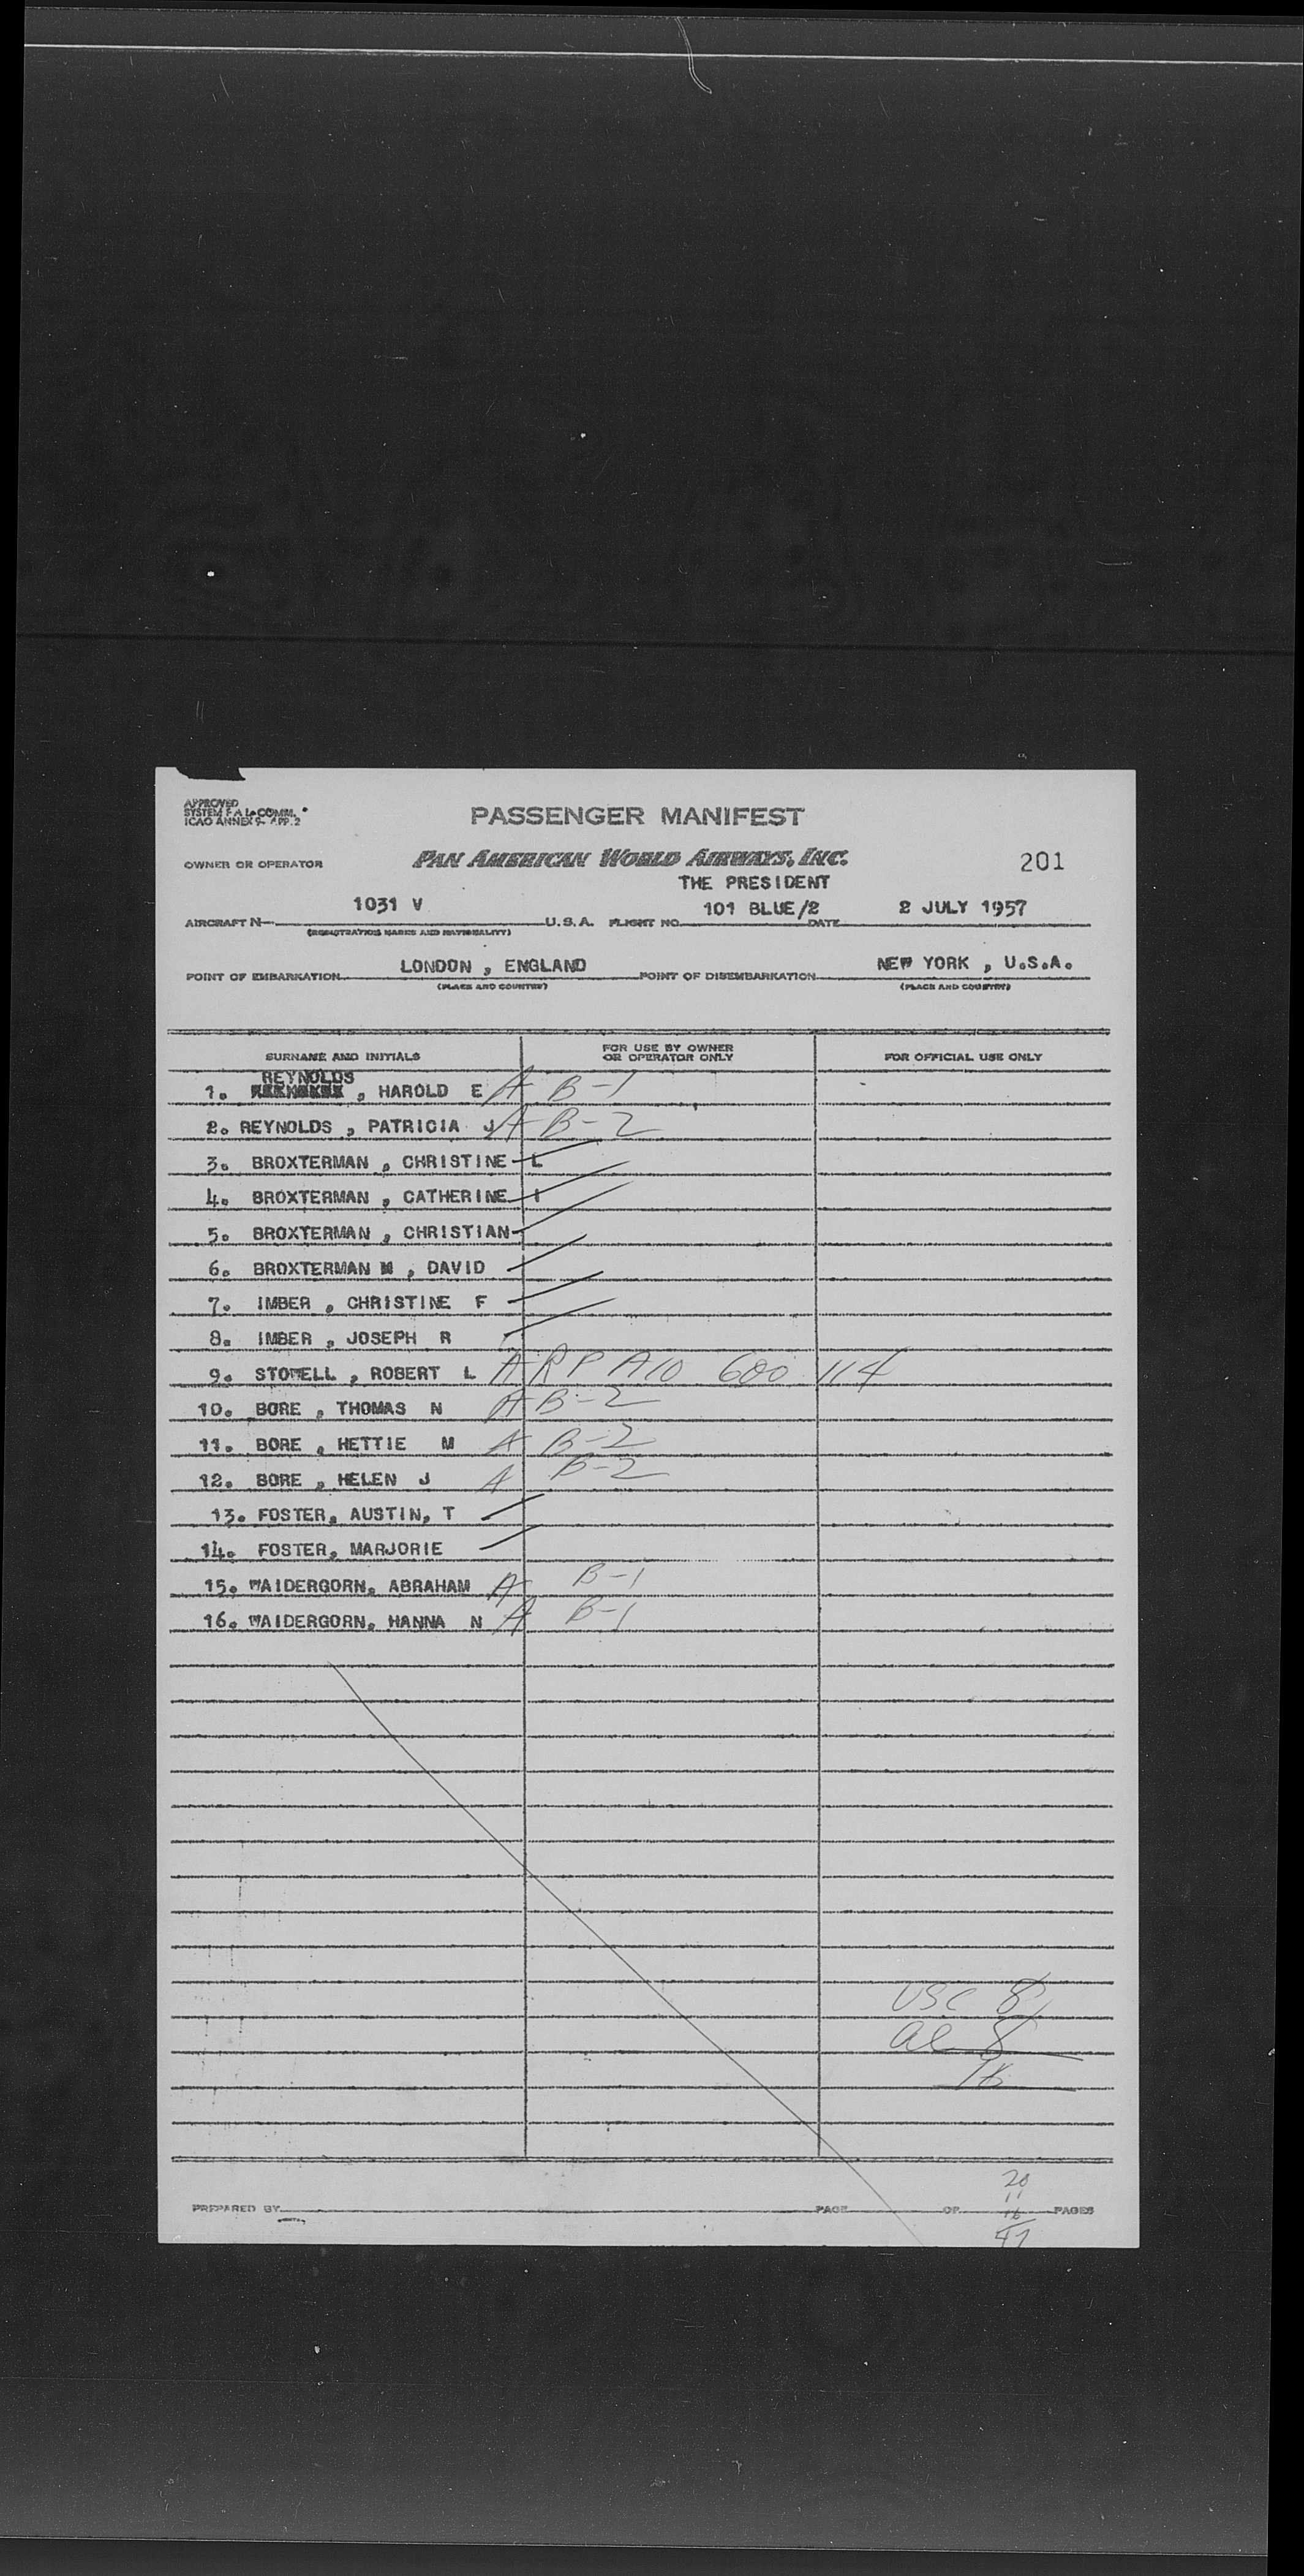 APPROVED
SYSTEM F A L COMM.
ICAO ANNEX 9- APP.2
PASSENGER MANIFEST
OWNER OR OPERATOR PAN AMERICAN WORLD AIRWAYS, INC. 201
THE PRESIDENT
AIRCRAFT N- 1031 V U.S.A. FLIGHT NO. 101 BLUE/2 DATE 2 JULY 1957
(REGISTRATION MARKS AND NATIONALITY)
POINT OF EMBARKATION LONDON , ENGLAND POINT OF DISEMBARKATION NEW YORK , U.S.A.
(PLACE AND COUNTRY) (PLACE AND COUNTRY)
SURNAME AND INITIALS FOR USE BY OWNER OR OPERATOR ONLY FOR OFFICIAL USE ONLY
REYNOLDS
1. , HAROLD E A B-1
2. REYNOLDS , PATRICIA J A B-2
3. BROXTERMAN , CHRISTINE L
4. BROXTERMAN , CATHERINE I
5. BROXTERMAN , CHRISTIAN
6. BROXTERMAN M , DAVID
7. IMBER , CHRISTINE F
8. IMBER , JOSEPH R
9. STOWELL , ROBERT L A RP A10 600 114
10. BORE , THOMAS N A B-2
11. BORE , HETTIE M A B-2
12. BORE , HELEN J A B-2
13. FOSTER, AUSTIN, T
14. FOSTER, MARJORIE
15. WAIDERGORN, ABRAHAM A B-1
16. WAIDERGORN, HANNA N A B-1
USC 8
al 8
16
20
11
PREPARED BY PAGE OF 16 PAGES
47